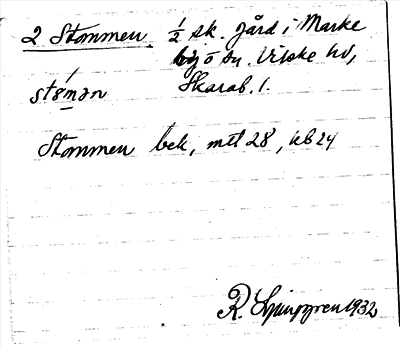 2 Stommen ½ sk. gård i Marke
by ö sn. Vilske hd,
Skarab. l.
Stommen bek, mtl 28, kb 24
R. Ljunggren 1932